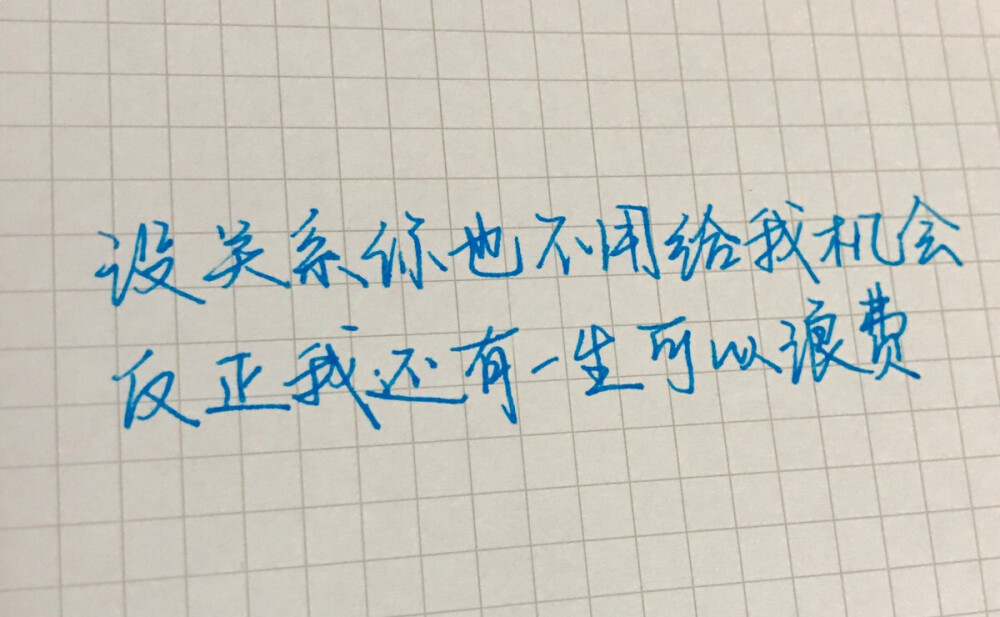 没关系你也不用给我机会
反正我还有一生可以浪费